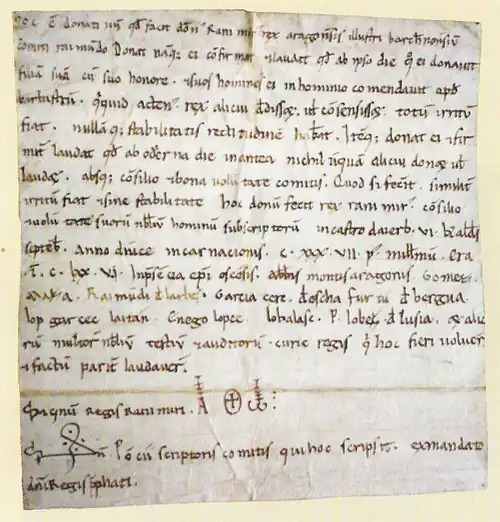 hoc ē donatiuū qđ facit dōn Rani mir rex aragonēsis illustri barchinonēsiū
comiti raimūdo Donat nāq; ei cōfirmat & laudat qđ ab ipso die q̄ ei donauit
filiā suā cū suo honore. & suos homines ei in hominio comendauit apđ
barbastrū. q̄cquid actenꝰ rex alicui
totū irritū
fiat. nullā q; stabilitatis rectitudinē habeat. Itēq; donat ei & fir
mit laudat qđ ab oderna die in antea nichil ūquā alicui donet ul
laudet. absq; cōsilio & bona uolūtate comitis. Quod si fecerit. similit
irritū fiat & sine stabilitate hoc donū fecit rex rani mirꝰ cōsilio
& uolūtate suorū nobiliū hominū subscriptorū in castro daierb. VI. kłds
septēb. Anno dn̄ice incarnacionis. C. XXX. VII. pꝰ millesimū. Era
T̄. C. LXX. VI. In p̄sencia ep̄i oscēsis. abbis montis aragonis. Gomez
Raimūdi đ larbes. Garcia đ oscha fortū đ bergua
lop garcec laitan. Enego lopec lobalasc. P. lobet đ lusia. & alio
rū multorū nobiliū testiū & auditorū. curie regis q̄ hoc fieri uoluer
& factū parit laudauer̄.
Signum Regis Rani miri. A
scriptoris comitis qui hoc scripsit. ex mandato
dn̄i Regis p̄phati.